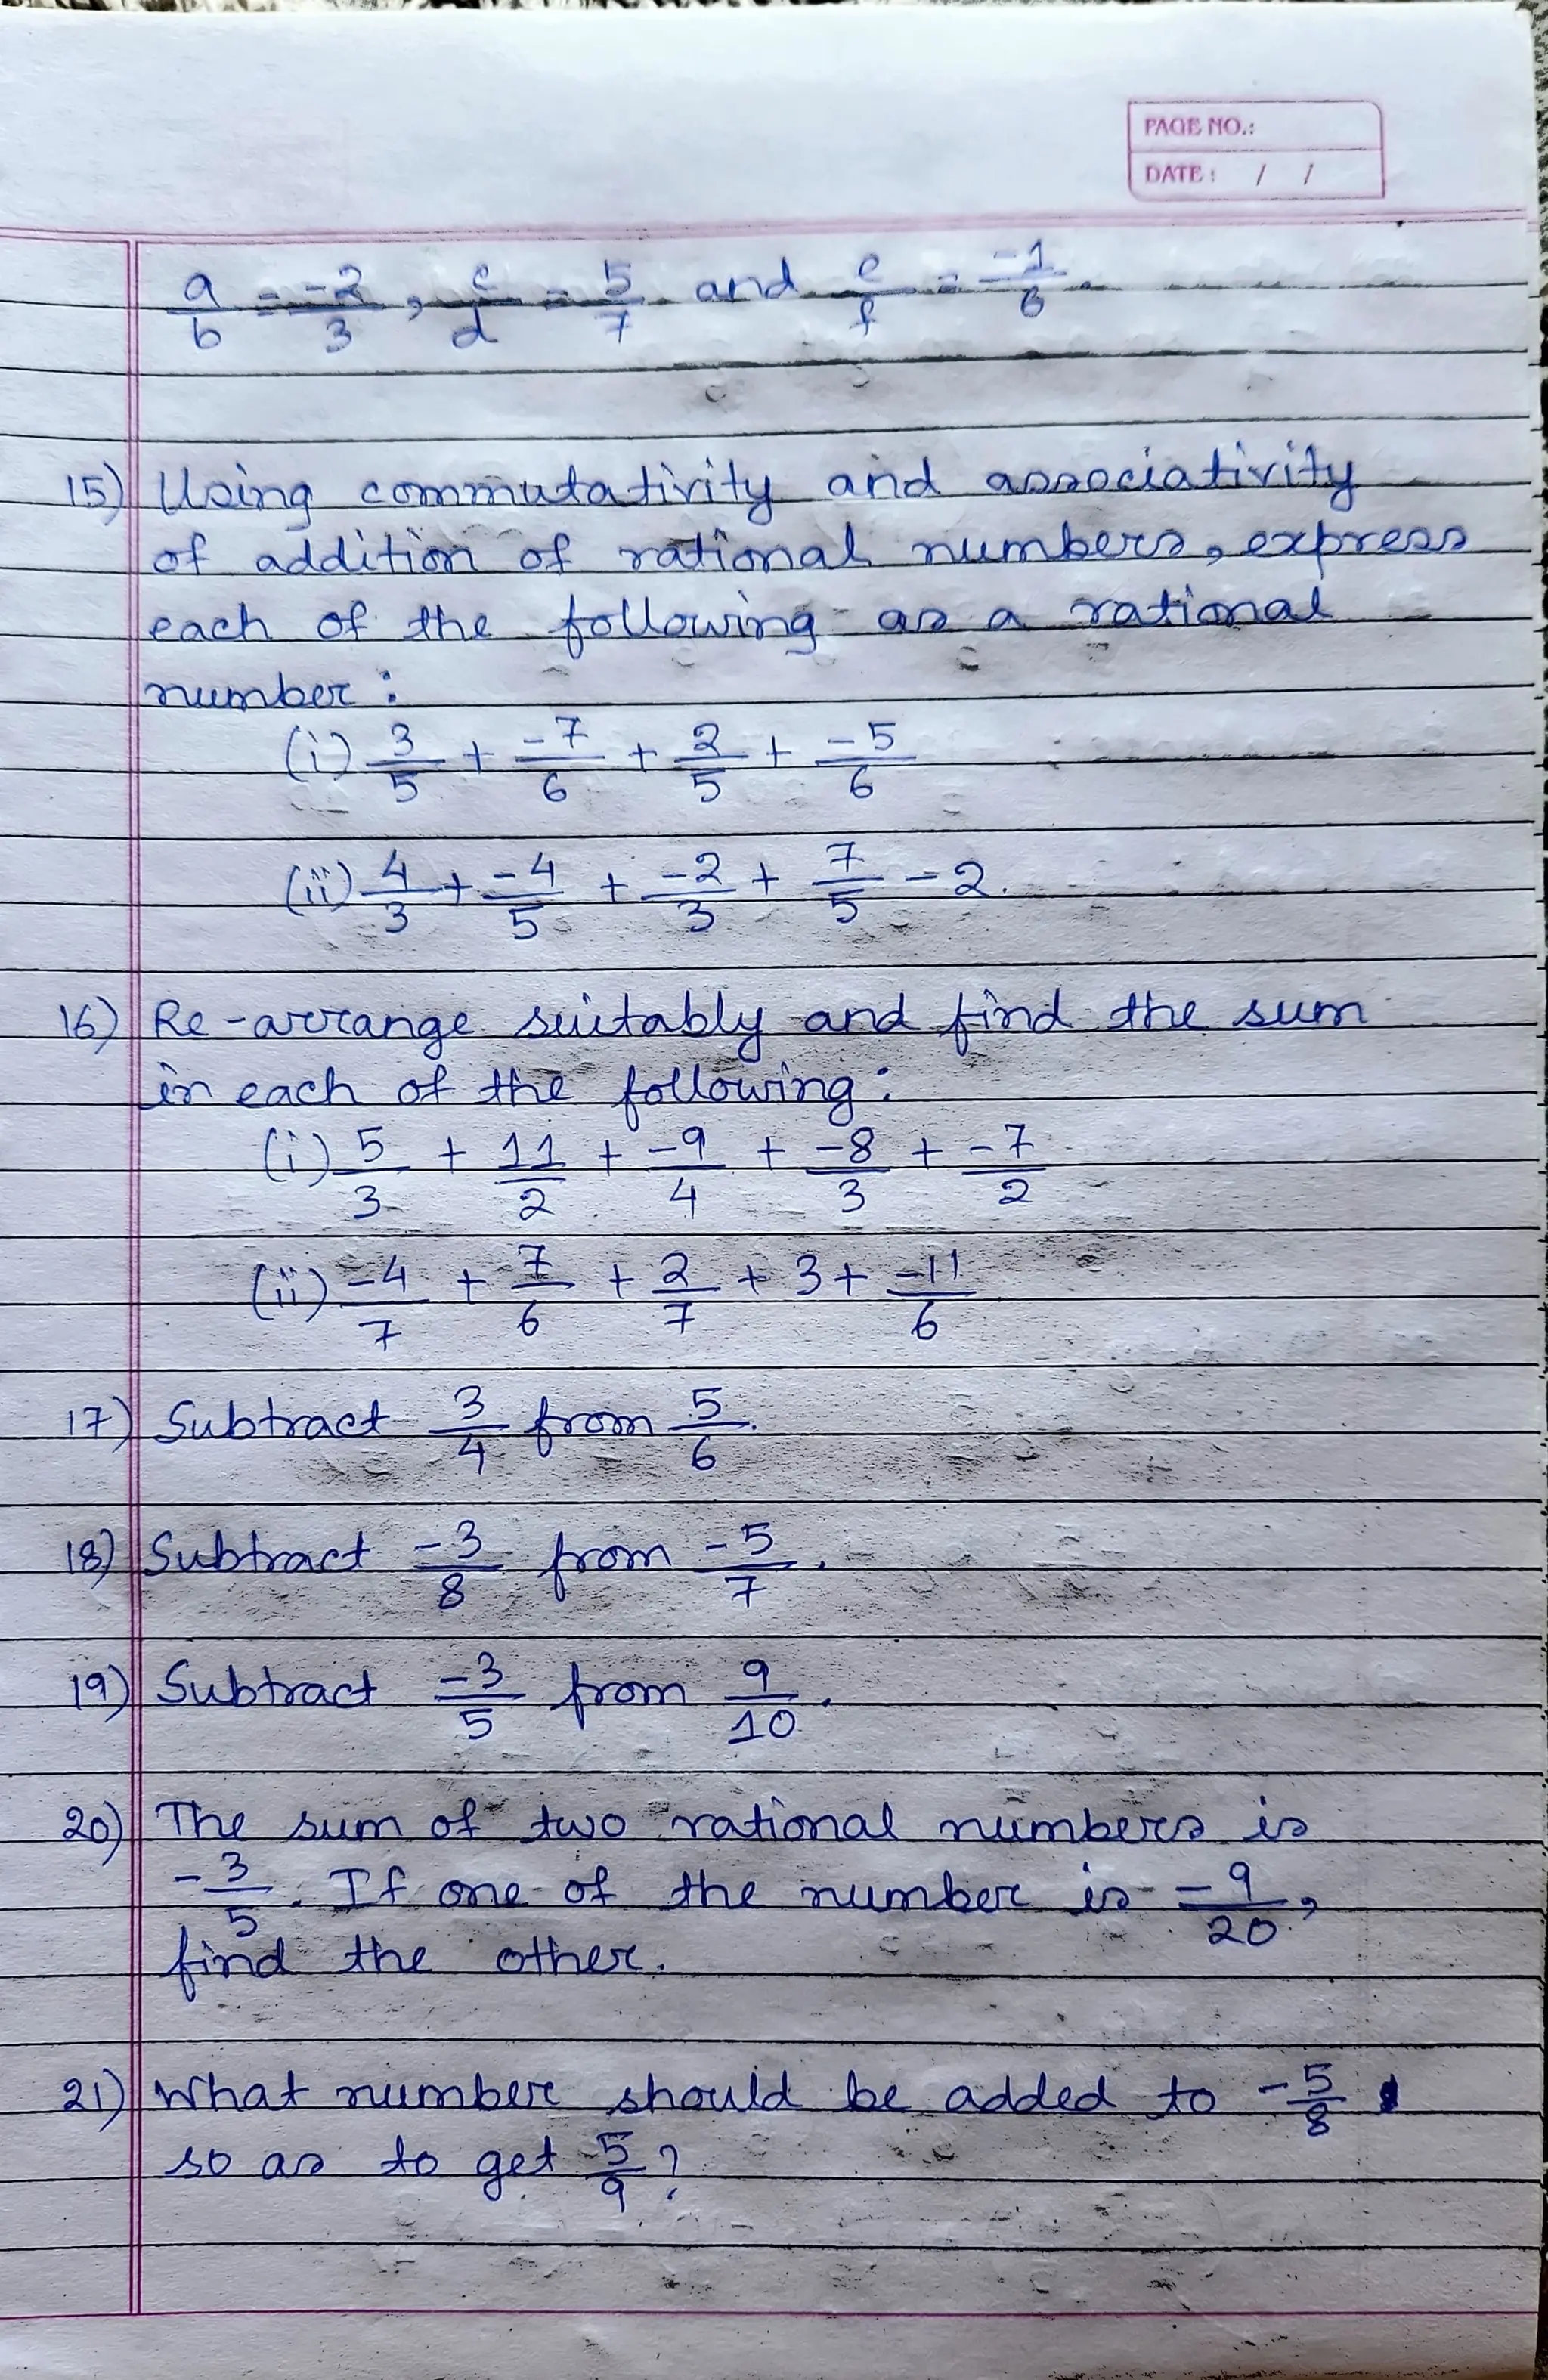 PAGE NO.:
DATE : / /
a/b = -2/3, c/d = 5/7 and e/f = -1/6.
15) Using commutativity and associativity
of addition of rational numbers, express
each of the following as a rational
number:
(i) 3/5 + -7/6 + 2/5 + -5/6
(ii) 4/3 + -4/5 + -2/3 + 7/5 - 2.
16) Re-arrange suitably and find the sum
in each of the following:
(i) 5/3 + 11/2 + -9/4 + -8/3 + -7/2
(ii) -4/7 + 7/6 + 2/7 + 3 + -11/6
17) Subtract 3/4 from 5/6.
18) Subtract -3/8 from -5/7.
19) Subtract -3/5 from 9/10.
20) The sum of two rational numbers is
-3/5. If one of the number is -9/20,
find the other.
21) What number should be added to -5/8
so as to get 5/9?